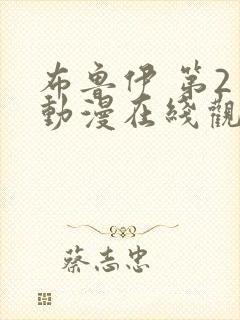 布魯伊 第2
動漫在綫觀
蔡志忠